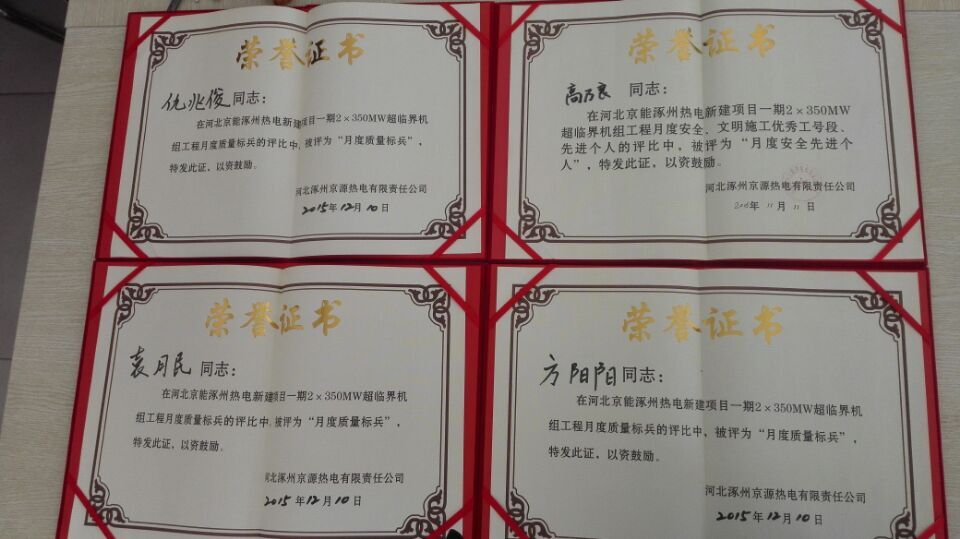 荣誉证书
仇兆俊同志：
在河北京能涿州热电新建项目一期2×350MW超临界机
组工程月度质量标兵的评比中，被评为“月度质量标兵”，
特发此证，以资鼓励。
河北涿州京源热电有限责任公司
2015年12月10日
荣誉证书
高乃良 同志：
在河北京能涿州热电新建项目一期2×350MW
超临界机组工程月度安全、文明施工优秀工号段、
先进个人的评比中，被评为“月度安全先进个
人”，特发此证，以资鼓励。
河北涿州京源热电有限责任公司
2016年11月11日
荣誉证书
袁月民同志：
在河北京能涿州热电新建项目一期2×350MW超临界机
组工程月度质量标兵的评比中，被评为“月度质量标兵”，
特发此证，以资鼓励。
河北涿州京源热电有限责任公司
2015年12月10日
荣誉证书
方阳阳同志：
在河北京能涿州热电新建项目一期2×350MW超临界机
组工程月度质量标兵的评比中，被评为“月度质量标兵”，
特发此证，以资鼓励。
河北涿州京源热电有限责任公司
2015年12月10日